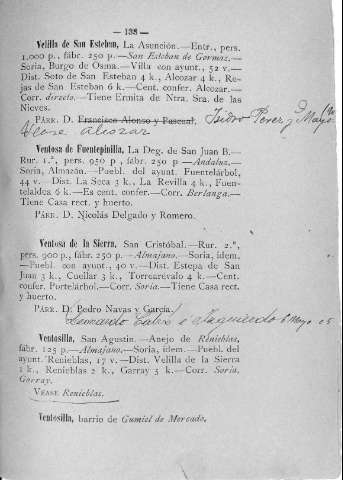 — 138 —
Velilla de San Esteban, La Asunción.—Entr., pers.
1,000 p., fábr. 250 p.—San Esteban de Gormaz.—
Soria, Burgo de Osma.—Villa con ayunt., 52 v.—
Dist. Soto de San Esteban 4 k., Alcozar 4 k., Re-
jas de San Esteban 6 k.—Cent. confer. Alcozar.—
Corr. directo.—Tiene Ermita de Ntra. Sra. de las
Nieves.
PÁRR. D. Francisco Alonso y Pascual. Isidro Perez y Mayo
Vease alcozar
Ventosa de Fuentepinilla, La Deg. de San Juan B.—
Rur. 1.ª, pers. 950 p, fábr. 250 p—Andaluz.—
Soria, Almazán.—Puebl. del ayunt. Fuentelárbol,
44 v.—Dist. La Seca 3 k., La Revilla 4 k., Fuen-
telaldea 6 k.—Es cent. confer.—Corr. Berlanga.—
Tiene Casa rect. y huerto.
PÁRR. D. Nicolás Delgado y Romero.
Ventosa de la Sierra, San Cristóbal.—Rur. 2.ª,
pers. 900 p., fábr. 250 p.—Almajano.—Soria, idem.
—Puebl. con ayunt., 40 v.—Dist. Estepa de San
Juan 3 k., Cuellar 3 k., Torrearévalo 4 k.—Cent.
confer. Portelárbol.—Corr. Soria.—Tiene Casa rect.
y huerto.
PÁRR. D. Pedro Navas y García.
Leonardo Mayo 05
Ventosilla, San Agustin.—Anejo de Renieblas,
fábr. 125 p.—Almajano.—Soria, idem.—Puebl. del
ayunt. Renieblas, 17 v.—Dist. Velilla de la Sierra
1 k., Renieblas 2 k., Garray 3 k.—Corr. Soria,
Garray.
VÉASE Renieblas.
Ventosilla, barrio de Gumiel de Mercado.